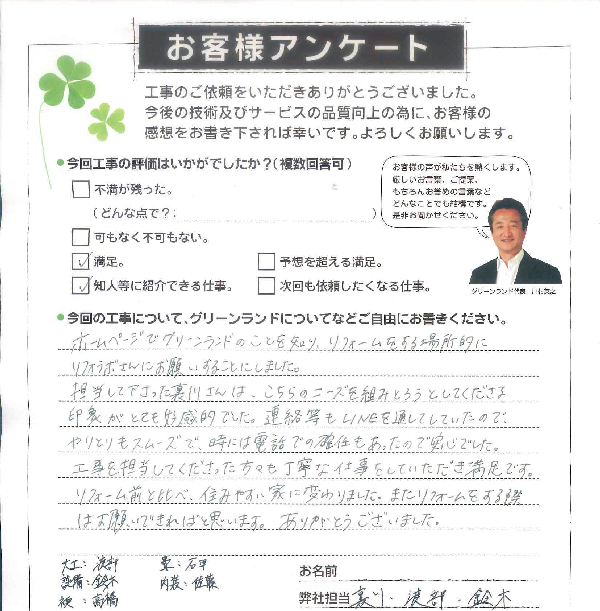 お客様アンケート
工事のご依頼をいただきありがとうございました。
今後の技術及びサービスの品質向上の為に、お客様の
感想をお書き下されば幸いです。よろしくお願いします。
●今回工事の評価はいかがでしたか?(複数回答可)
不満が残った。
(どんな点で?: )
可もなく不可もない。
✓満足。
予想を超える満足。
✓知人等に紹介できる仕事。
次回も依頼したくなる仕事。
お客様の声が私たちを熱くします。
厳しいお言葉、ご提案、
もちろんお褒めの言葉など
どんなことでも結構です。
是非お聞かせください。
グリーンランド代表
●今回の工事について、グリーンランドについてなどご自由にお書きください。
ホームページでグリーンランドのことを知り、リフォームをする場所的に
リフォラボさんにお願いすることにしました。
担当して下さった裏川さんは、こちらのニーズを組みとろうとしてくださる
印象がとても好感的でした。連絡等もLINEを通してしていたので、
やりとりもスムーズで、時には電話での確任もあったので安心でした。
工事を担当してくださった方々も丁寧な仕事をしていただき満足です。
リフォーム前と比べ、住みやすい家に変わりました。またリフォームをする際
はお願いできればと思います。ありがとうございました。
大工:渡部 畳:石甲
設備:鈴木 内装:佐藤
高橋
お名前
弊社担当 裏川・渡部・鈴木